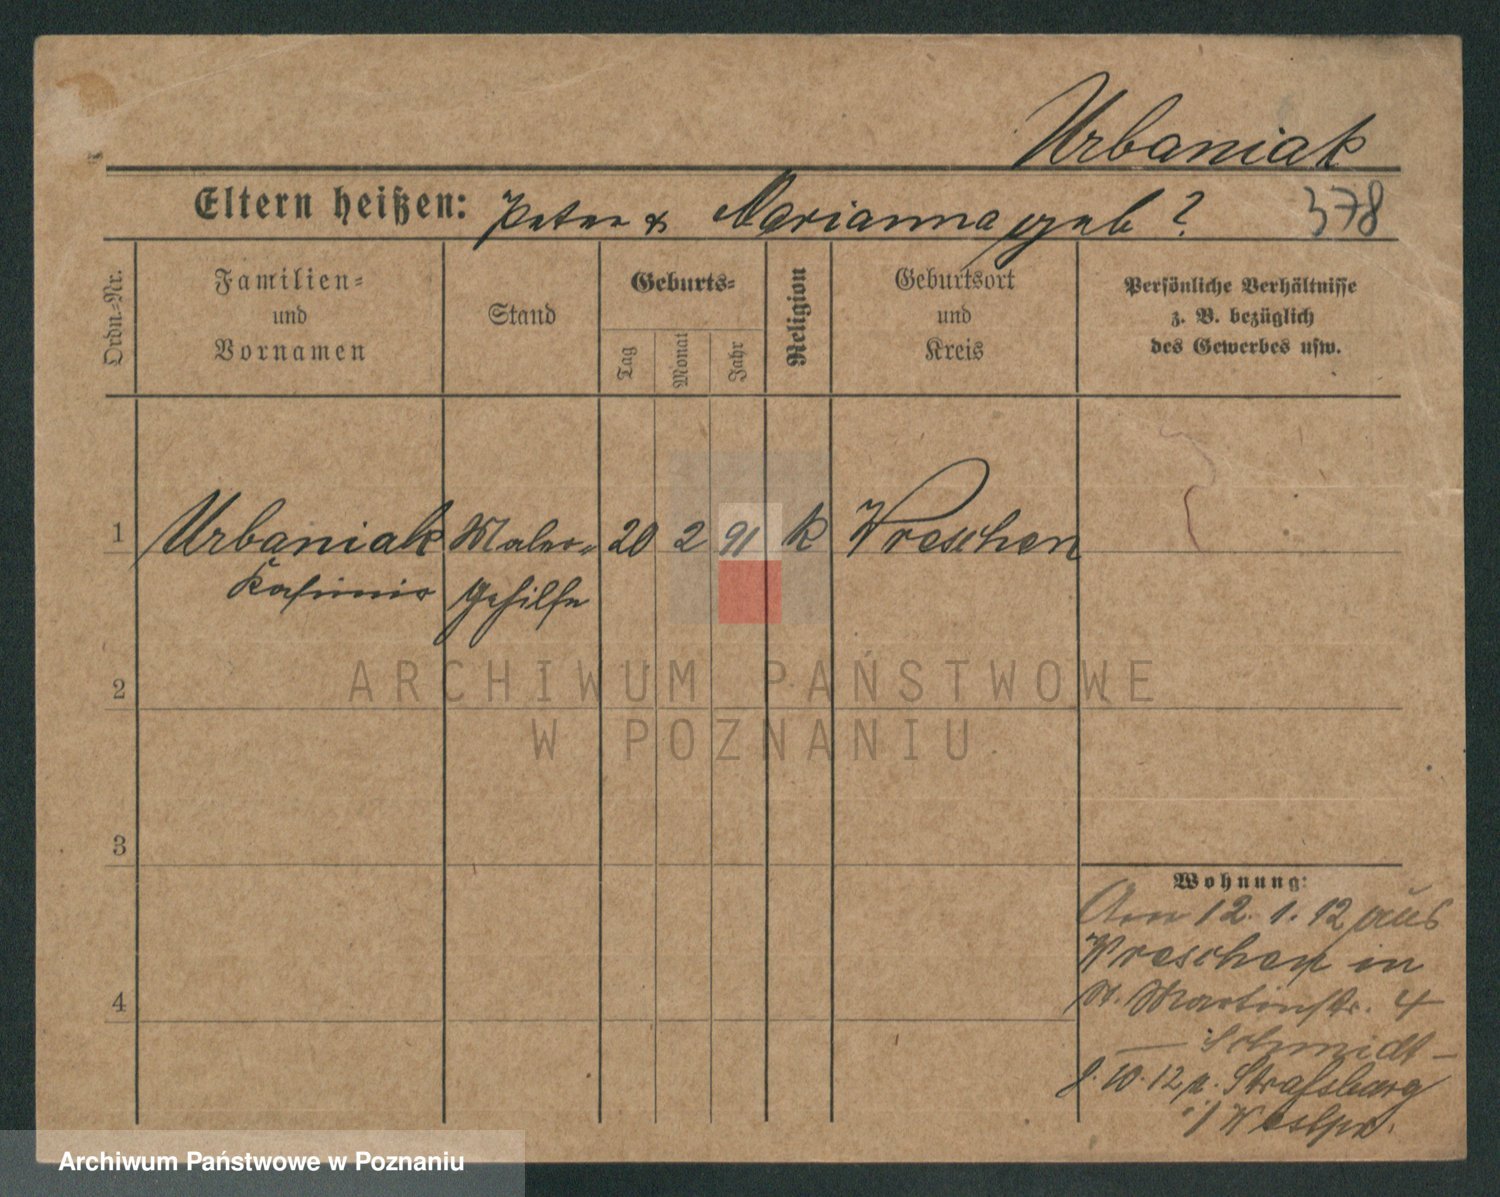 Urbaniak
Eltern heißen: Peter & Marianna geb ? 378
Ordn.-Nr.
Familien-
und
Vornamen
Stand
Geburts-
Tag
Monat
Jahr
Religion
Geburtsort
und
Kreis
Persönliche Verhältnisse
z. B. bezüglich
des Gewerbes usw.
1 Urbaniak Maler- 20 2 91 k Wreschen
Kasimir Gehilfe
2
3
4
Wohnung:
Am 12. 1. 12 aus
Wreschen in
St. Martinstr. 4
— Schmidt —
10. 12 n. Strasburg
i/ Westpr.
ARCHIWUM PAŃSTWOWE
W POZNANIU
Archiwum Państwowe w Poznaniu